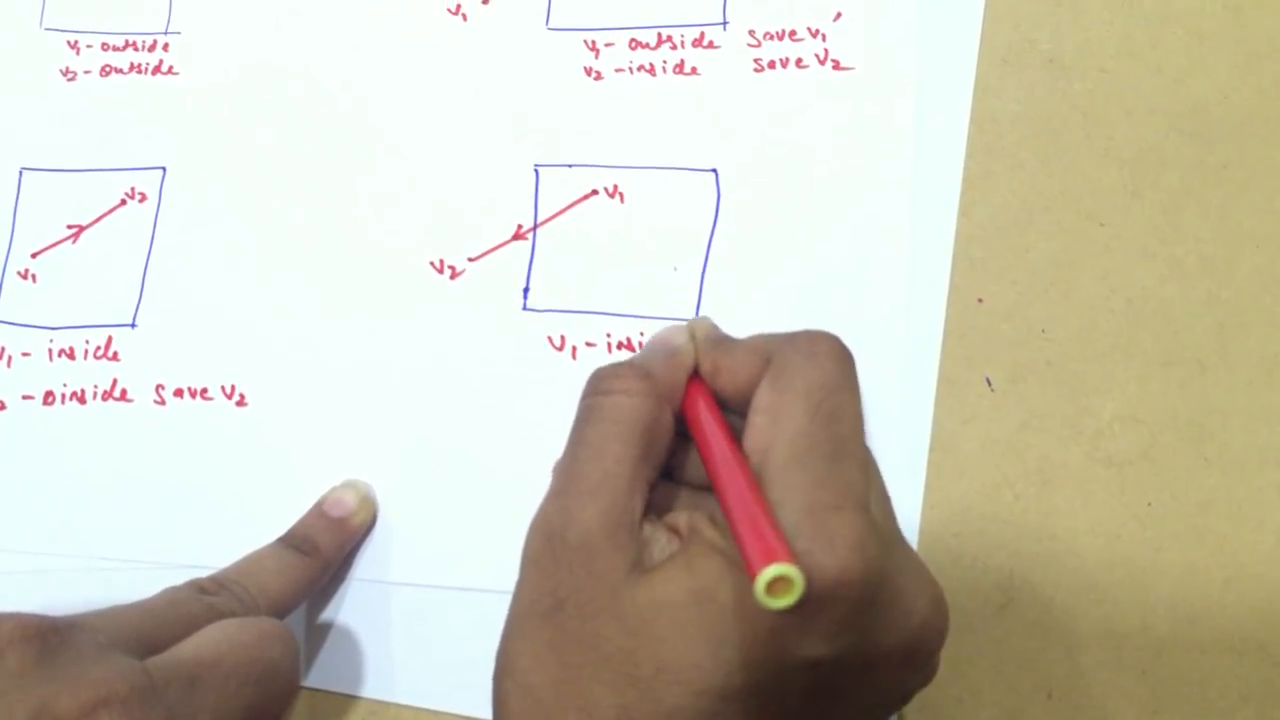 V1
V1 - outside
V2 - outside
V1 - outside save V1'
V2 - inside save V2
V2
V1
V1 - inside
- oinside save V2
V1
V2
V1 - insi